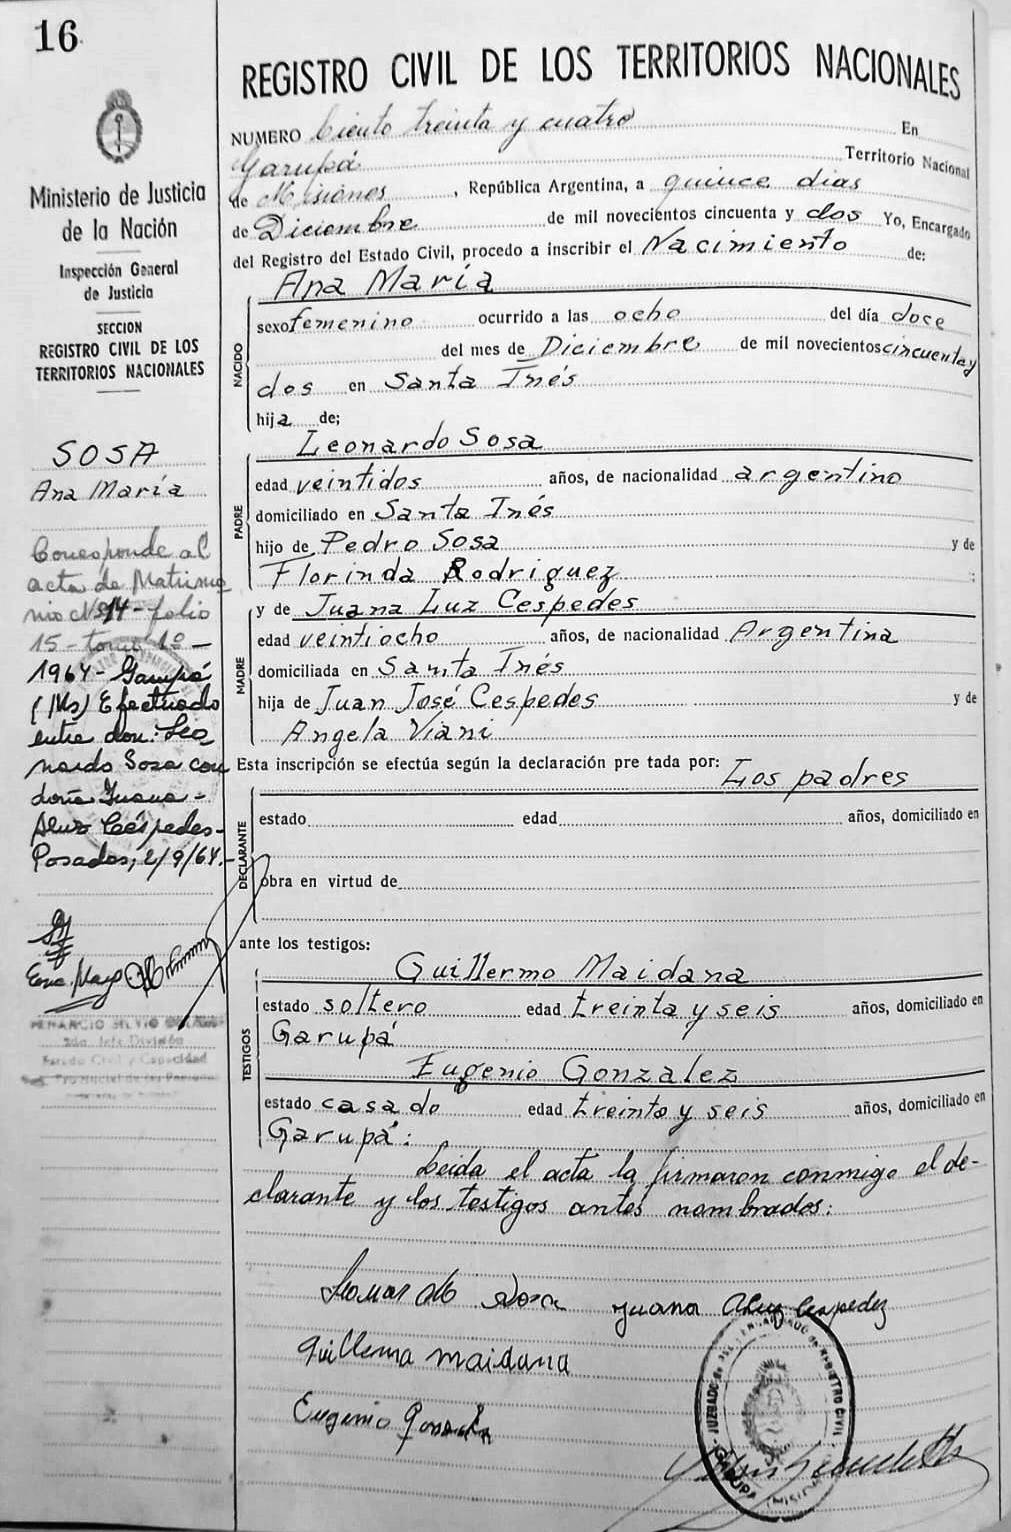 16
Ministerio de Justicia
de la Nación
Inspección General
de Justicia
SECCION
REGISTRO CIVIL DE LOS
TERRITORIOS NACIONALES
SOSA
Ana María
Corresponde al
acta de Matrimo
nio Nº 14 - folio
15 - tomo 1º -
1964 - Garupá
(Ms) Efectuado
entre don: Leo
nardo Sosa con
doña Juana -
Céspedes -
Posadas, 2/9/64.-
2do. Jefe División
Estado Civil y Capacidad
REGISTRO CIVIL DE LOS TERRITORIOS NACIONALES
NUMERO Ciento treinta y cuatro En
Garupá Territorio Nacional
de Misiones, República Argentina, a quince dias
de Diciembre de mil novecientos cincuenta y dos Yo, Encargado
del Registro del Estado Civil, procedo a inscribir el Nacimiento de:
NACIDO
Ana María
sexo femenino ocurrido a las ocho del día doce
del mes de Diciembre de mil novecientos cincuenta y
dos en Santa Inés
hija de;
PADRE
Leonardo Sosa
edad veintidos años, de nacionalidad argentino
domiciliado en Santa Inés
hijo de Pedro Sosa y de
Florinda Rodriguez ;
MADRE
y de Juana Luz Cespedes
edad veintiocho años, de nacionalidad Argentina
domiciliada en Santa Inés
hija de Juan José Cespedes y de
Angela Viani
Esta inscripción se efectúa según la declaración pre tada por: Los padres
DECLARANTE
estado edad años, domiciliado en
obra en virtud de
ante los testigos:
TESTIGOS
Guillermo Maidana
estado soltero edad treinta y seis años, domiciliado en
Garupá
Eugenio Gonzalez
estado casado edad treinta y seis años, domiciliado en
Garupá:
Leida el acta la firmaron conmigo el de-
clarante y los testigos antes nombrados:
Leonardo Sosa Juana Cespedez
Guillermo Maidana
Eugenio
JUZGADO de REGISTRO CIVIL
GARUPA (MISIONES)